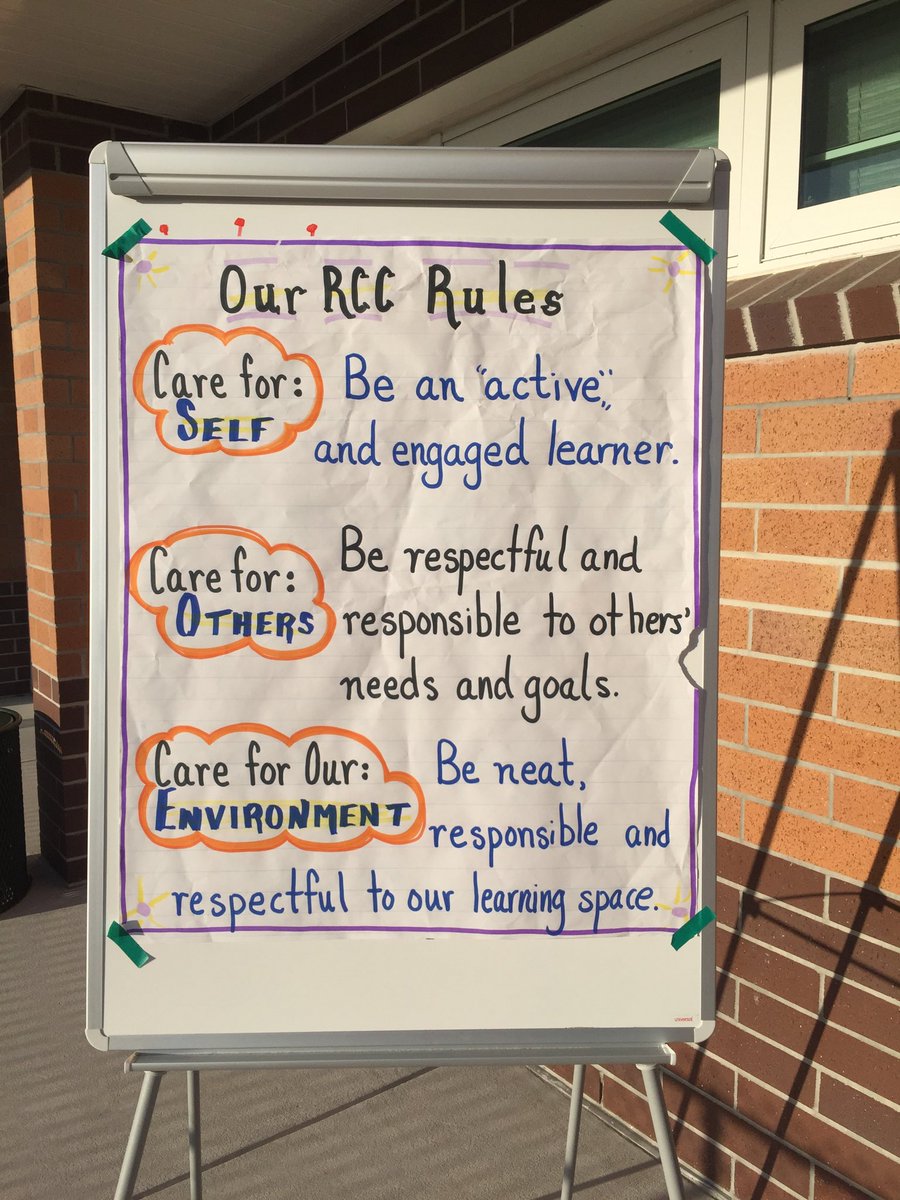 Our RCC Rules
Care for:
SELF
Be an "active",
and engaged learner.
Care for:
OTHERS
Be respectful and
responsible to others'
needs and goals.
Care for Our:
ENVIRONMENT
Be neat,
responsible and
respectful to our learning space.